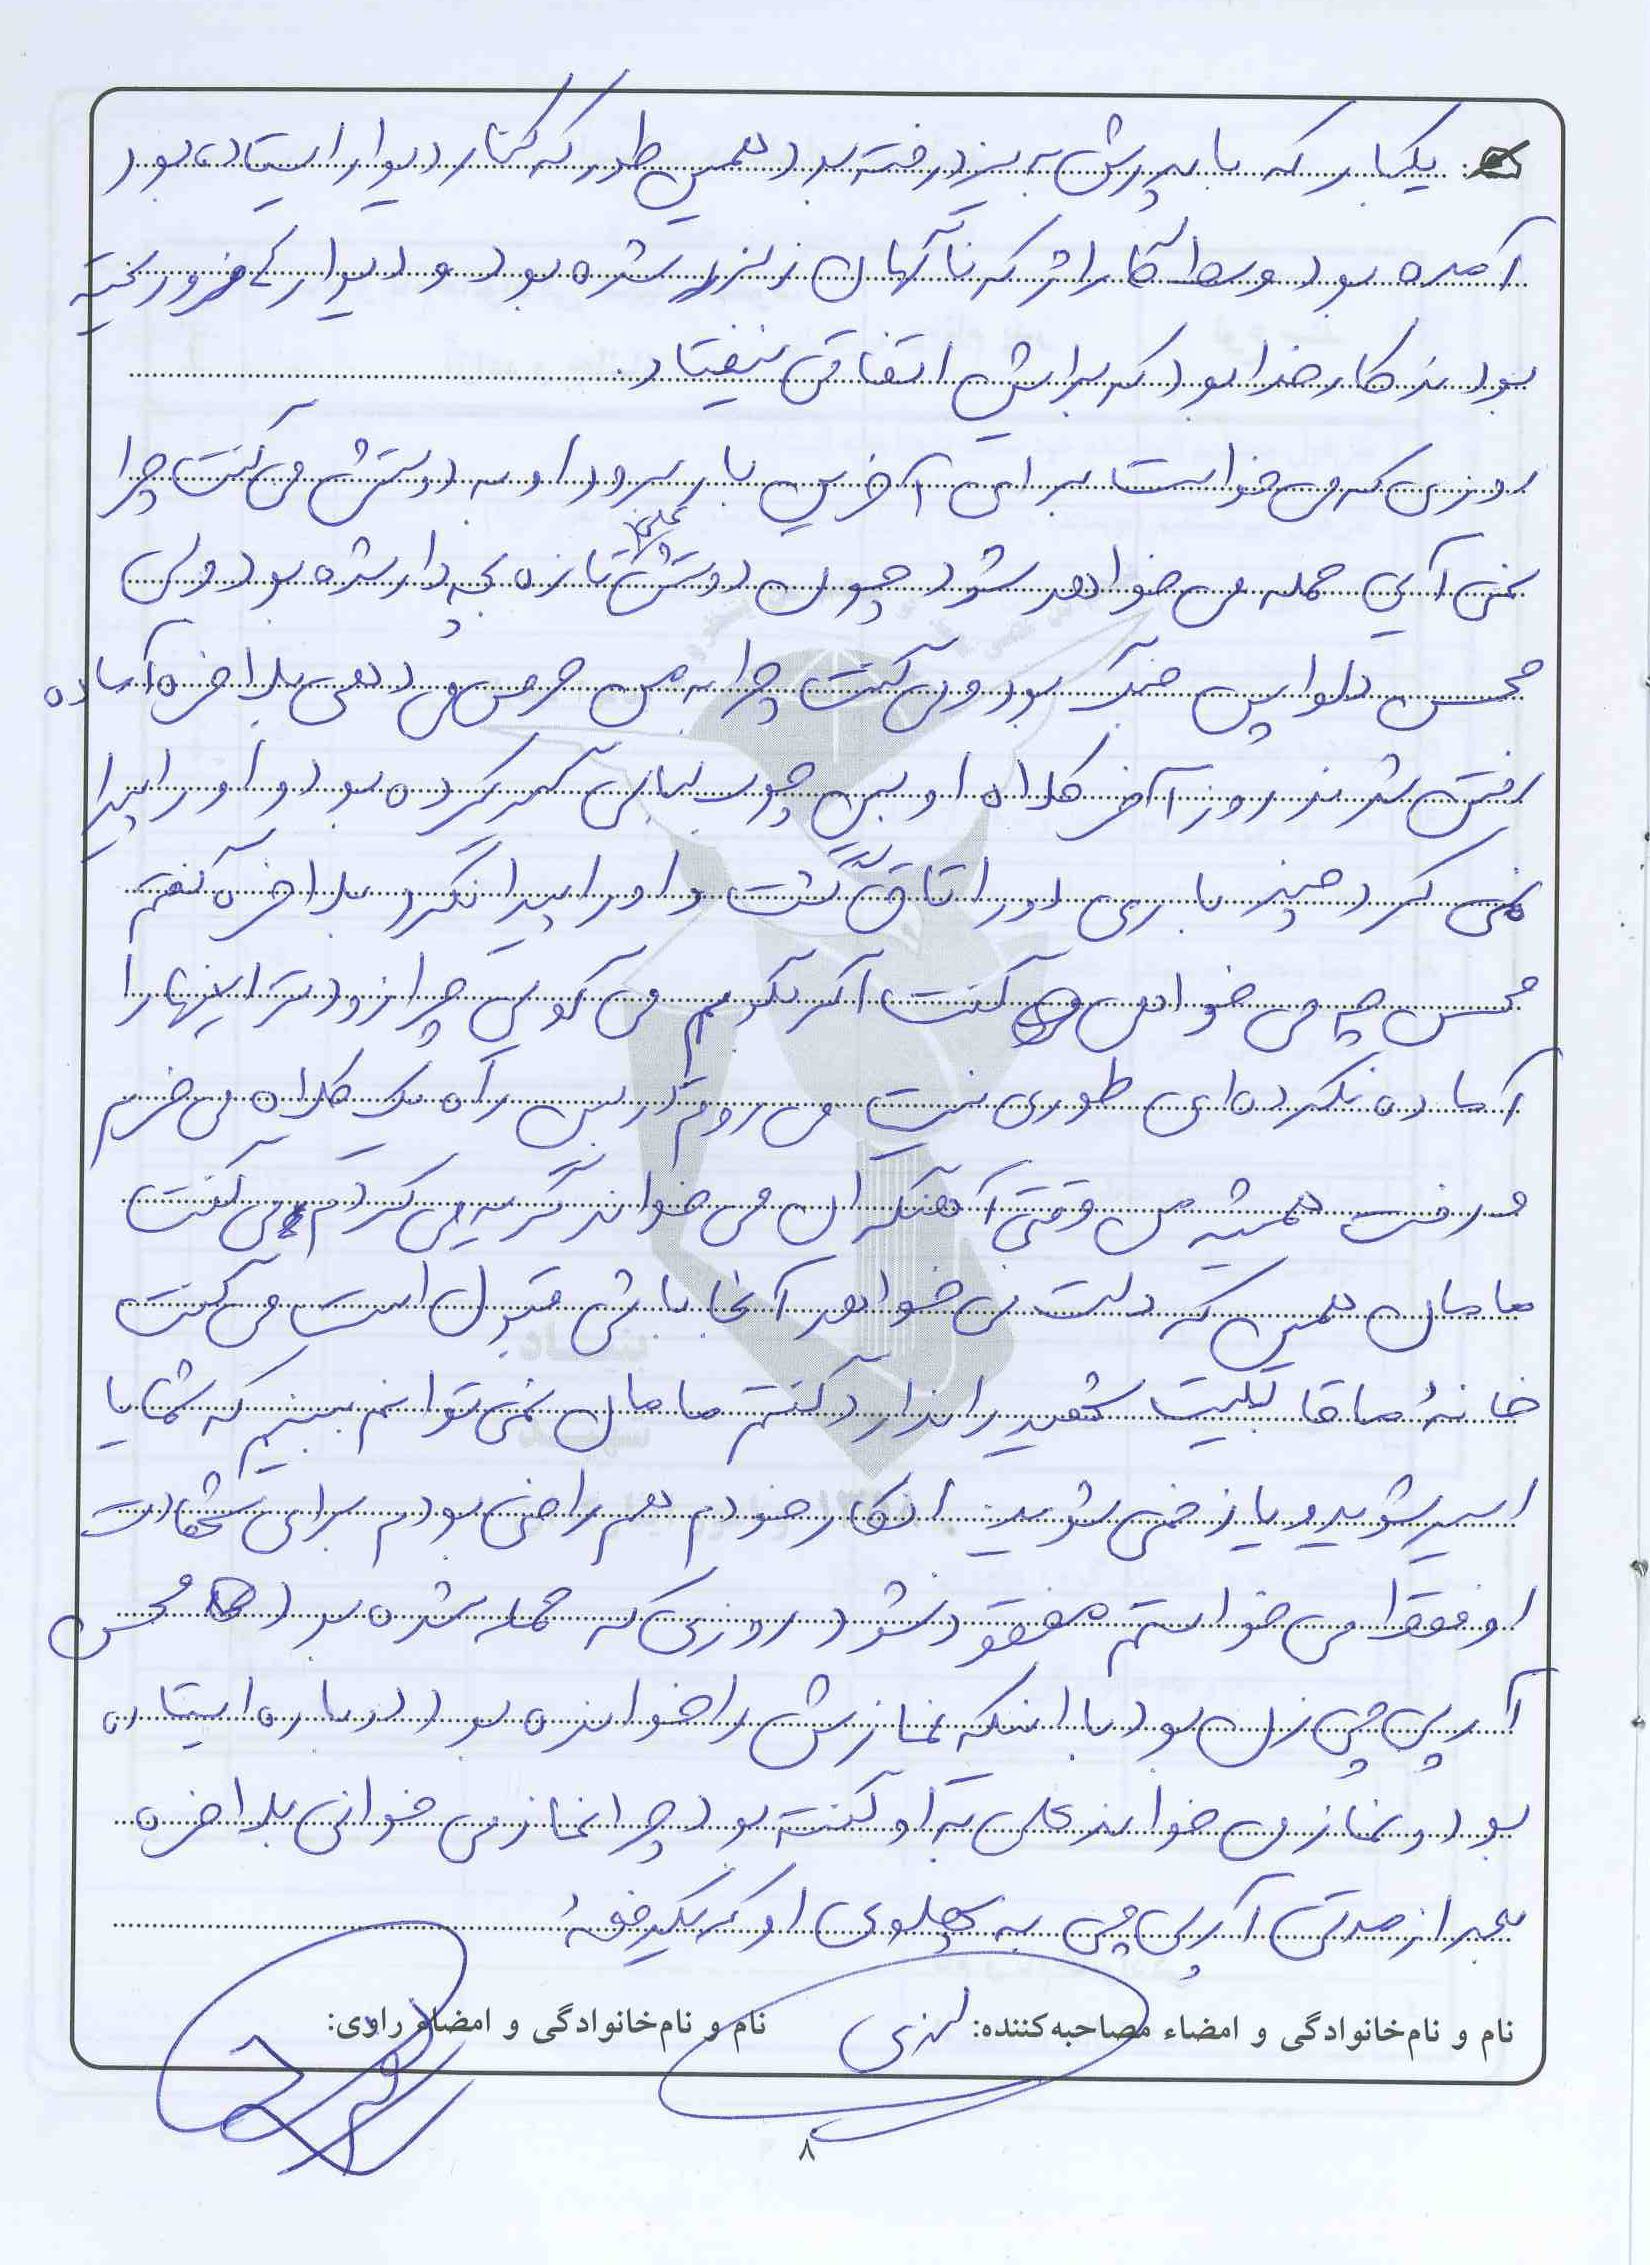 یکبار که با پدرش به یزد رفته بود همین طور که کنار دیوار ایستاده بود
آمده بود وسط که ناگهان زلزله شده بود و دیوار فرو ریخته
بودند کار خدا بود که برایش اتفاقی نیفتاد.
روزی که می خواست برای آخرین بار برود او به دوستش می گفت چرا
نمی آیی حمله می خواهد شود چون دوستش علی تازه بچه دار شده بود ولی
محسن دلواپس جنگ بود ولی گفت چرا به من حرص می دهی بلاخره آماده
رفتن شدند روز آخر کلاه او بین چوب لباسی گیر کرده بود و او را پیدا
نمی کرد چند باری دور اتاق گشت و او را پیدا نکرد بلاخره گفتم
محسن چه می خواهی گفت اگر بگویم می گویی چرا زودتر اینها را
آماده نکرده ای طوری نیست می روم در بین راه یک کلاه می خرم
و رفت همیشه من وقتی آهنگران می خواند گریه می کردم می گفت
مامان همین که دلت می خواهد آنجا باشی قبول است می گفت
خانهٔ ما قابلیت شهید را ندارد گفتم مامان نمی توانم ببینم که شما یا
اسیر شوید و یا زخمی شوید. انگار خودم هم راضی بودم برای شهادت
او فقط می خواستم مفقود نشود روزی که حمله شده بود محسن
آرپی جی زن بود با اینکه نمازش را خوانده بود دوباره ایستاده
بود و نماز می خواند علی به او گفته بود چرا نماز می خوانی بلاخره
بعد از مدتی آرپی جی به پهلوی او
نام و نام‌خانوادگی و امضاء مصاحبه‌کننده: نام و نام‌خانوادگی و امضاء راوی:
۸